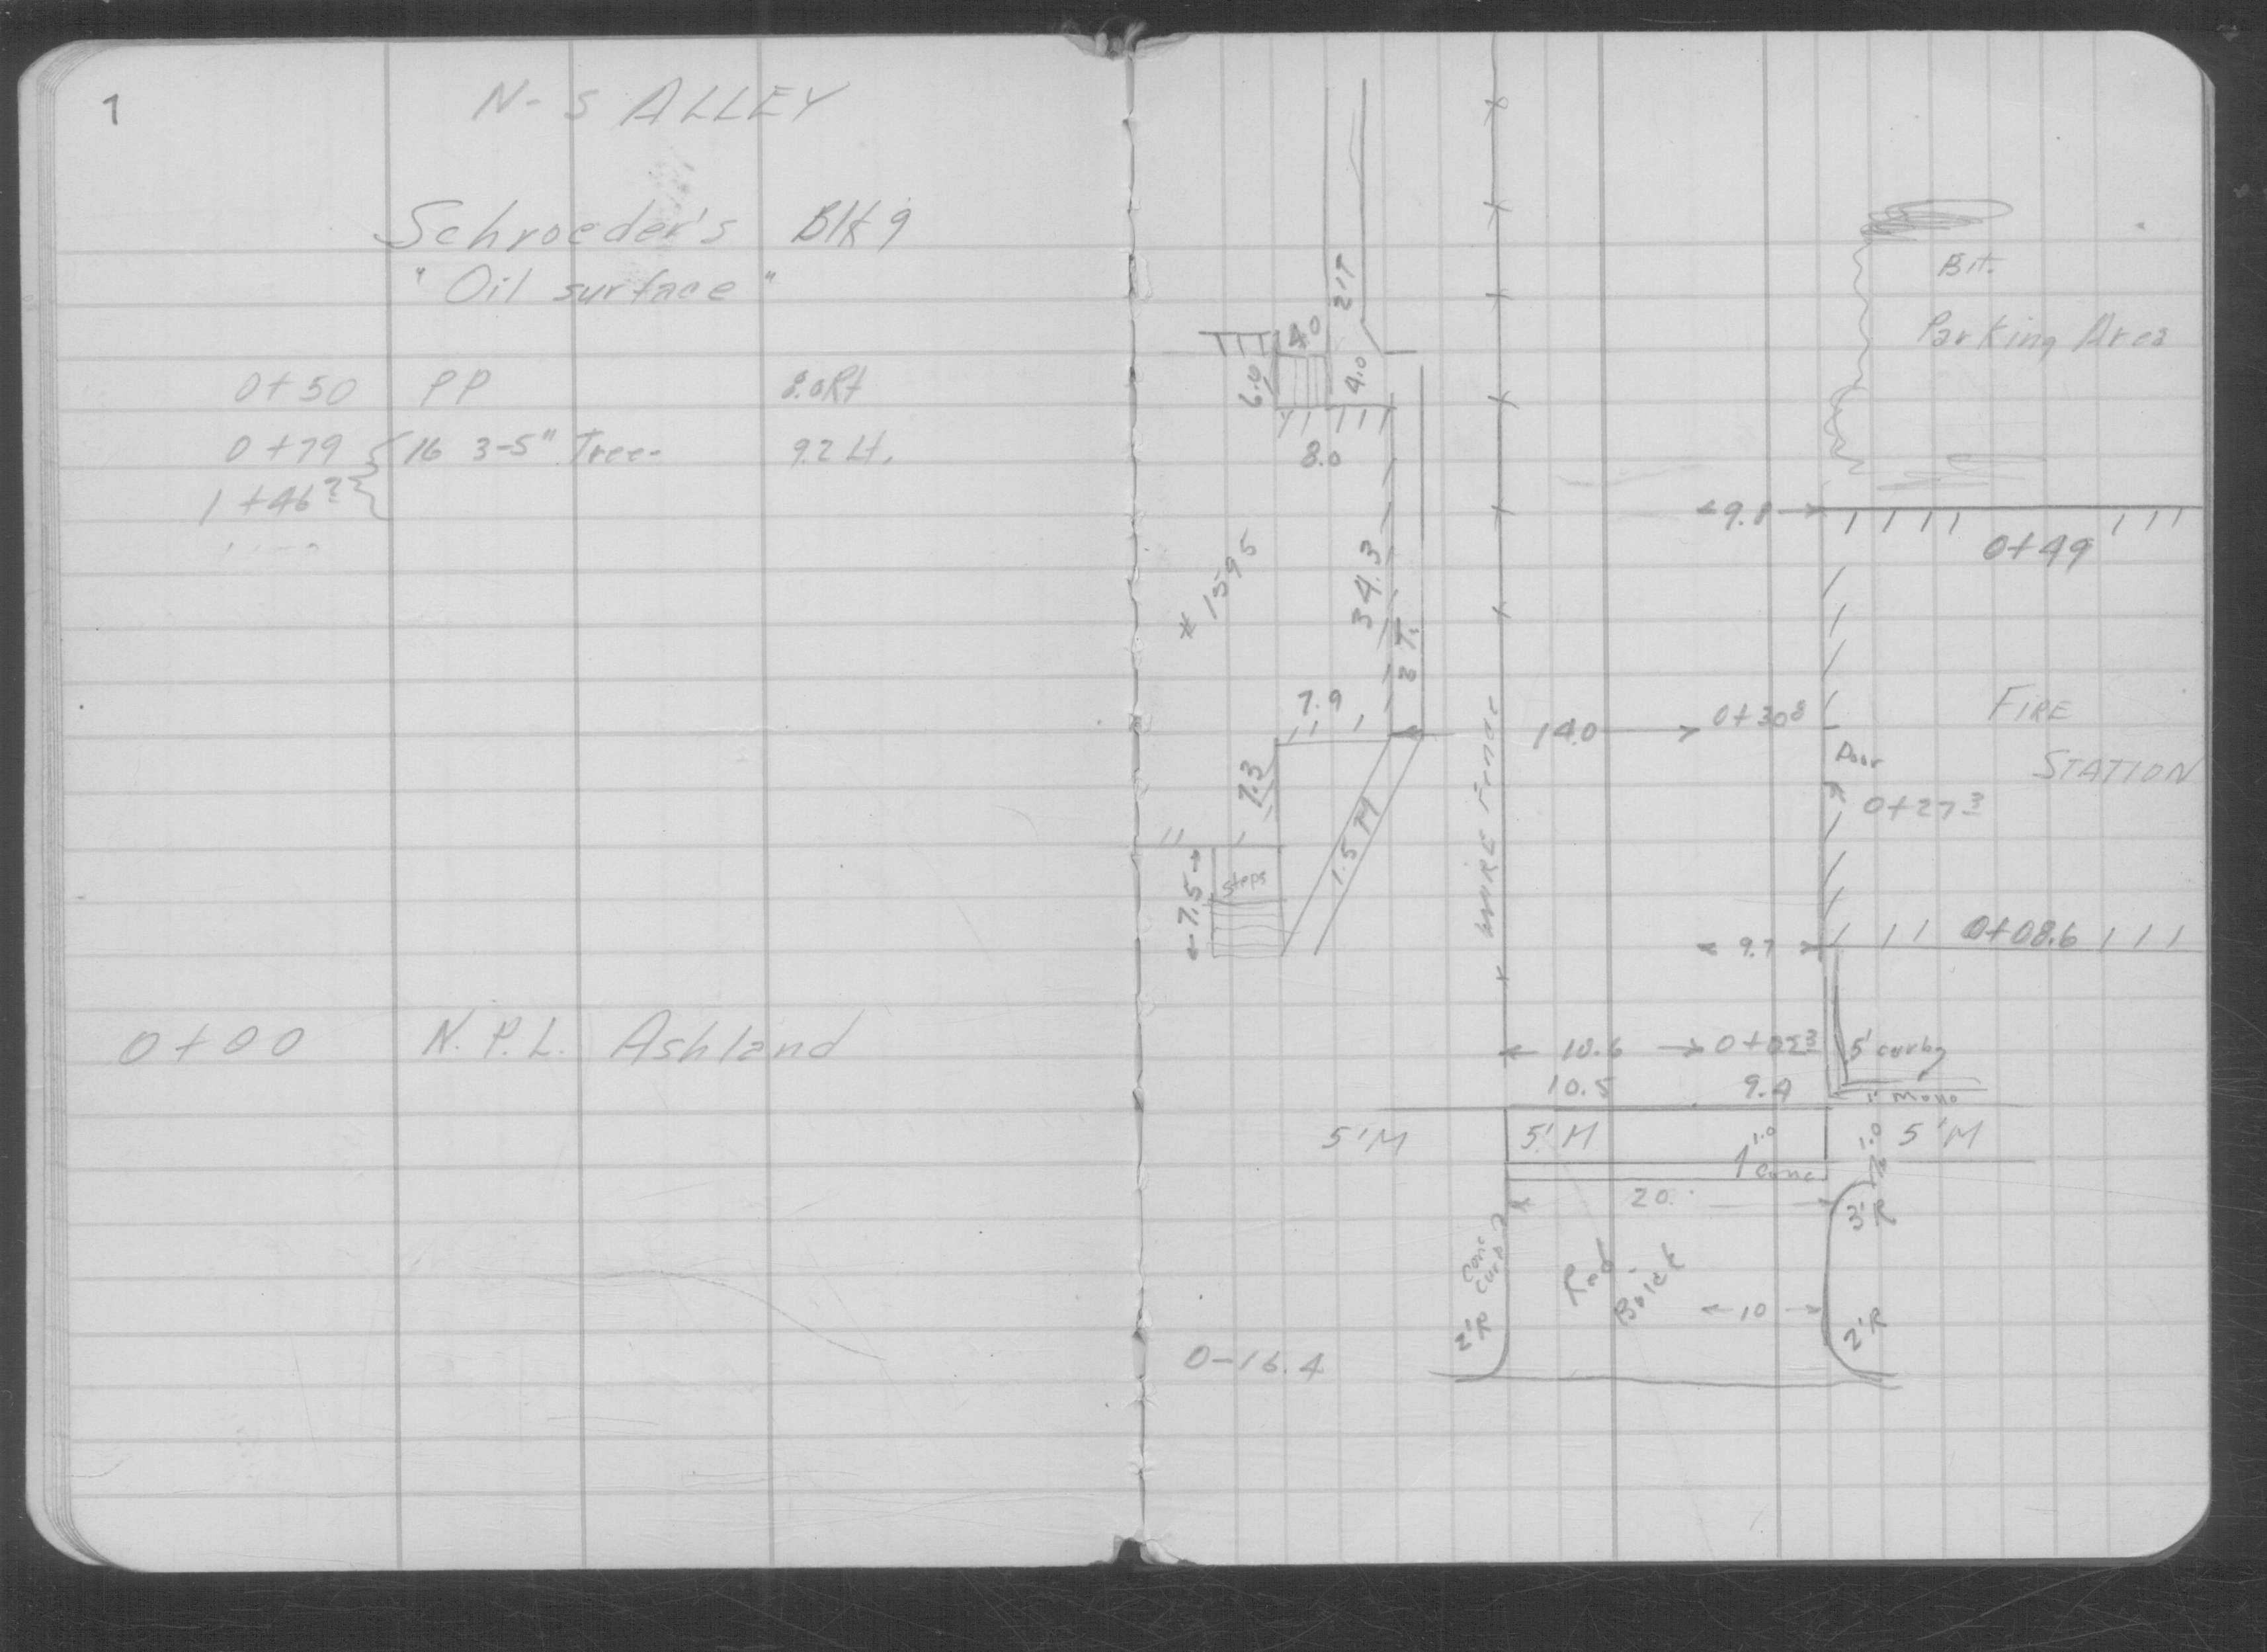 1
N-S ALLEY
Schroeder's Blk 9
"Oil surface"
0+50 PP 8.0Rt
0+79 16 3-5" Tree- 9.2 Lt.
1+46
0+00 N.P.L. Ashland
Bit.
Parking Area
2'T
4.0
6.0
4.0
8.0
9.8
0+49
34.3
* 1595
2 T.
7.9
14.0
0+30 8
FIRE
STATION
Door
0+27 3
7.3
WIRE Fence
1.5 M
Steps
7.5
0+08.6
9.7
10.6
5' curb
10.5 9.4
Mono
5'M 5'M 1.0 1.0 5'M
1' Conc
20
3'R
Conc Curb
2'R
Red Brick
10
2'R
0-16.4